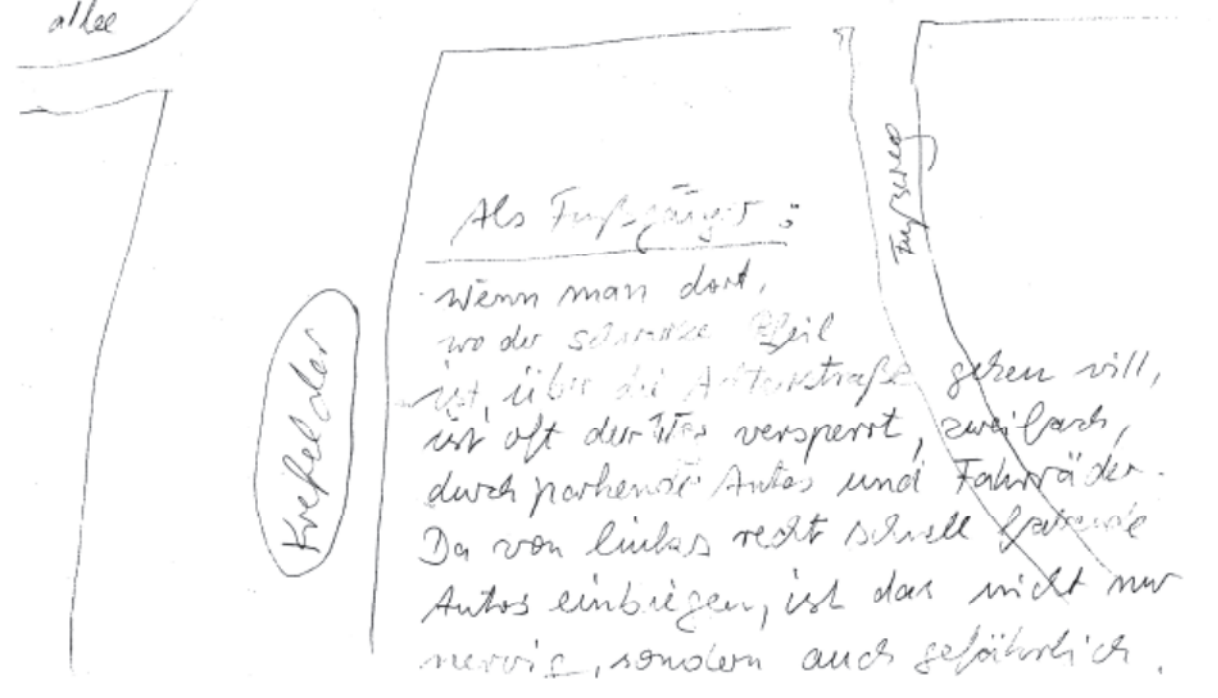 allee
Fußweg
Krefelder
Als Fußgänger:
Wenn man dort,
wo der schwarze Pfeil
ist, über die Arturstraße gehen will,
ist oft der Weg versperrt, zweifach,
durch parkende Autos und Fahrräder.
Da von links recht schnell fahrende
Autos einbiegen, ist das nicht nur
nervig, sondern auch gefährlich.